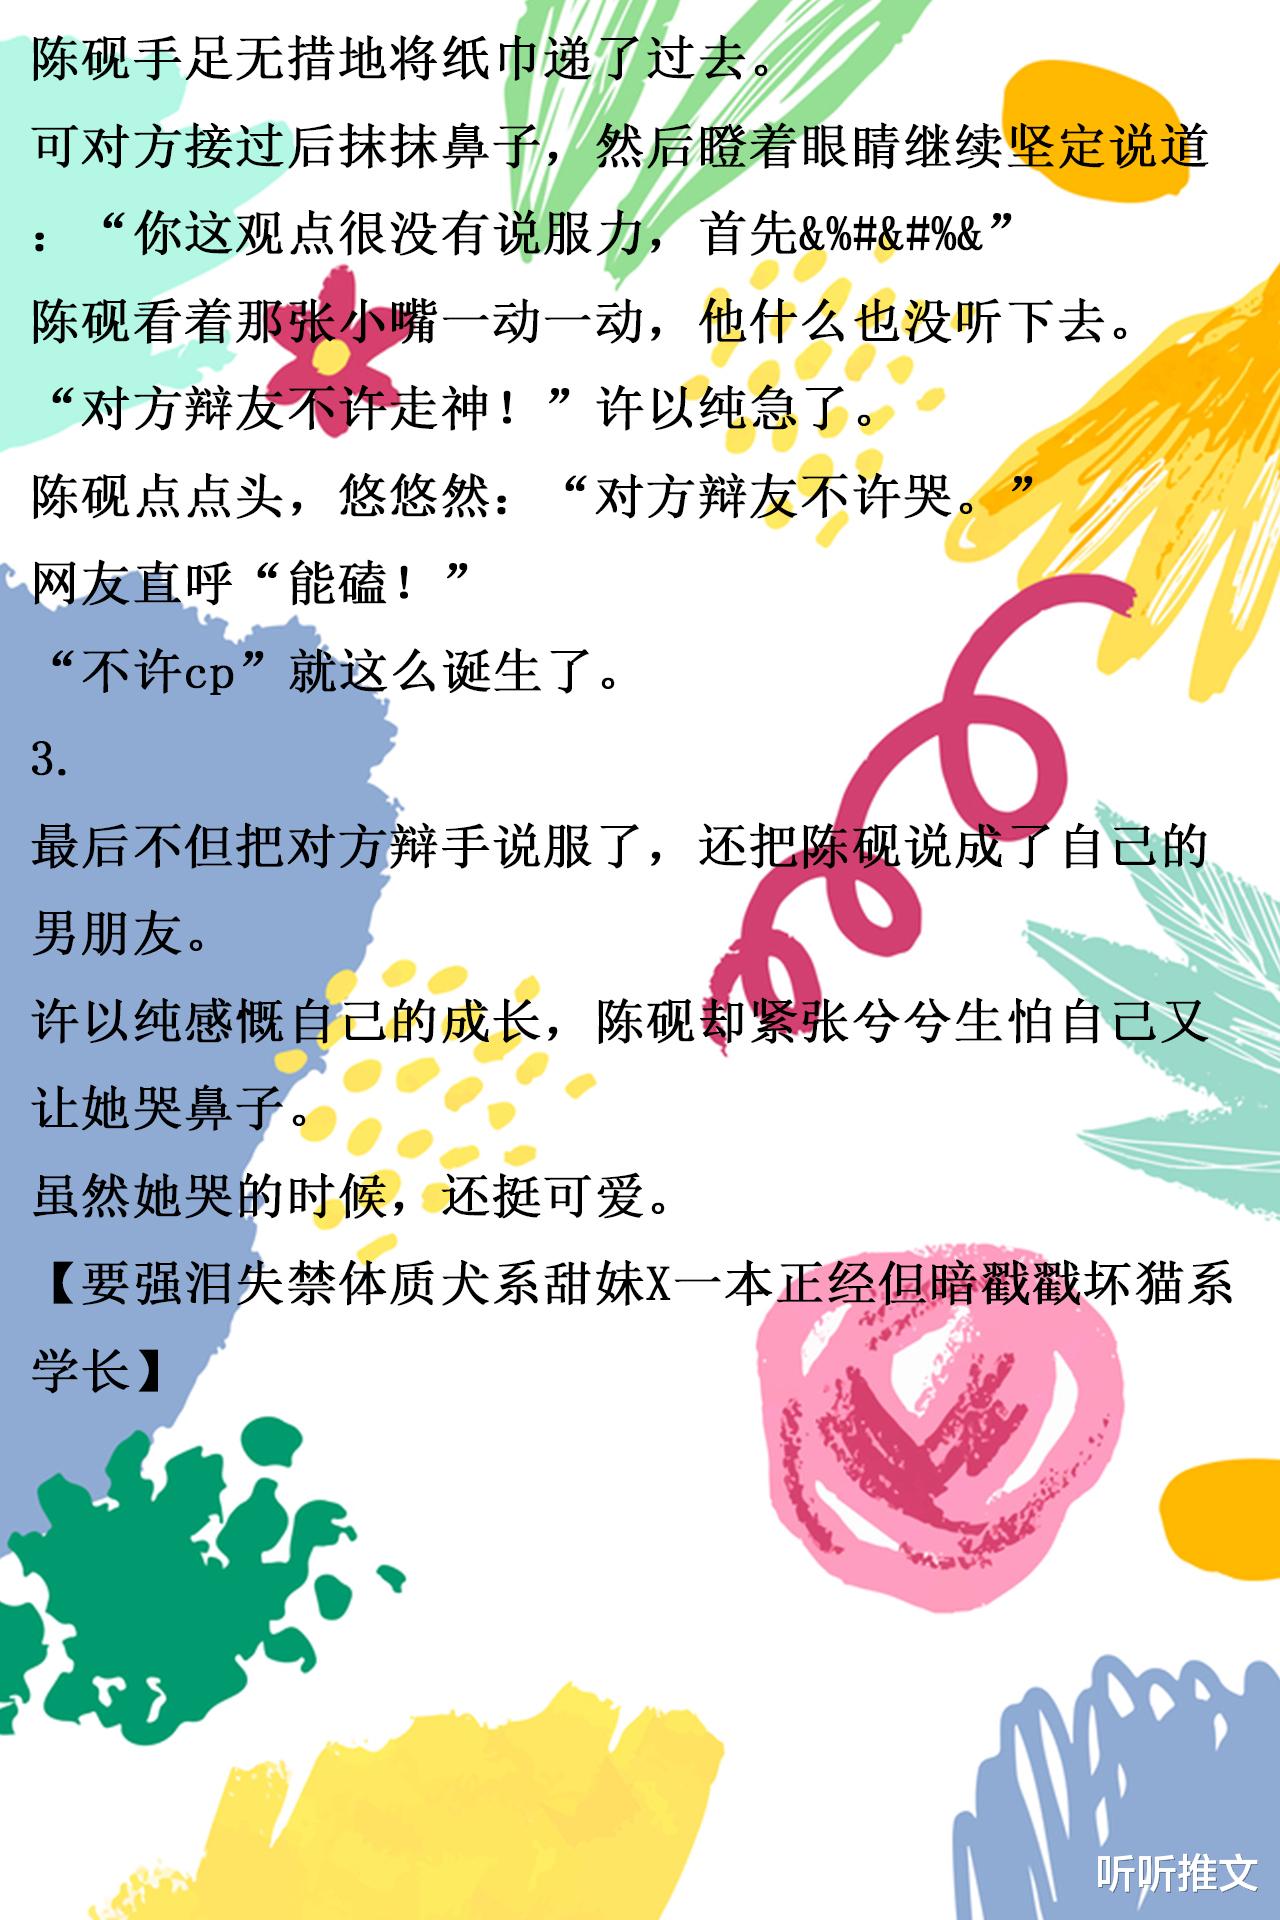 陈砚手足无措地将纸巾递了过去。
可对方接过后抹抹鼻子，然后瞪着眼睛继续坚定说道
：“你这观点很没有说服力，首先&%#&#%&”
陈砚看着那张小嘴一动一动，他什么也没听下去。
“对方辩友不许走神！”许以纯急了。
陈砚点点头，悠悠然：“对方辩友不许哭。”
网友直呼“能磕！”
“不许cp”就这么诞生了。
3.
最后不但把对方辩手说服了，还把陈砚说成了自己的
男朋友。
许以纯感慨自己的成长，陈砚却紧张兮兮生怕自己又
让她哭鼻子。
虽然她哭的时候，还挺可爱。
【要强泪失禁体质犬系甜妹X一本正经但暗戳戳坏猫系
学长】
听听推文